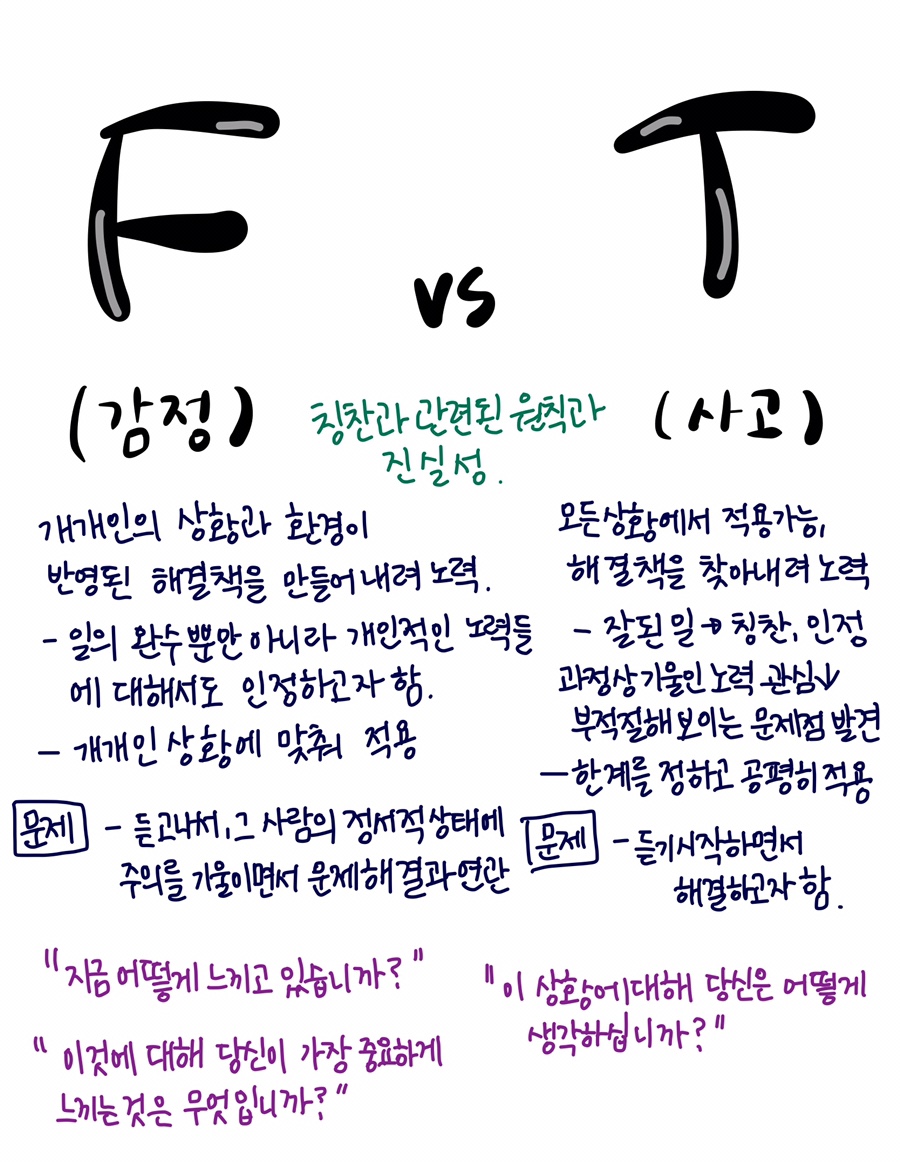 F vs T
(감정)
칭찬과 관련된 원칙과
진실성.
(사고)
개개인의 상황과 환경이
반영된 해결책을 만들어내려 노력.
- 일의 완수뿐만 아니라 개인적인 노력들
에 대해서도 인정하고자 함.
- 개개인 상황에 맞춰 적용
문제 - 듣고나서, 그 사람의 정서적 상태에
주의를 기울이면서 문제해결과 연관
"지금 어떻게 느끼고 있습니까?"
"이것에 대해 당신이 가장 중요하게
느끼는 것은 무엇입니까?"
모든상황에서 적용가능,
해결책을 찾아내려 노력
- 잘된 일 → 칭찬, 인정
과정상 기울인 노력 관심↓
부적절해 보이는 문제점 발견
- 한계를 정하고 공평히 적용
문제 - 듣기시작하면서
해결하고자 함.
"이 상황에대해 당신은 어떻게
생각하십니까?"